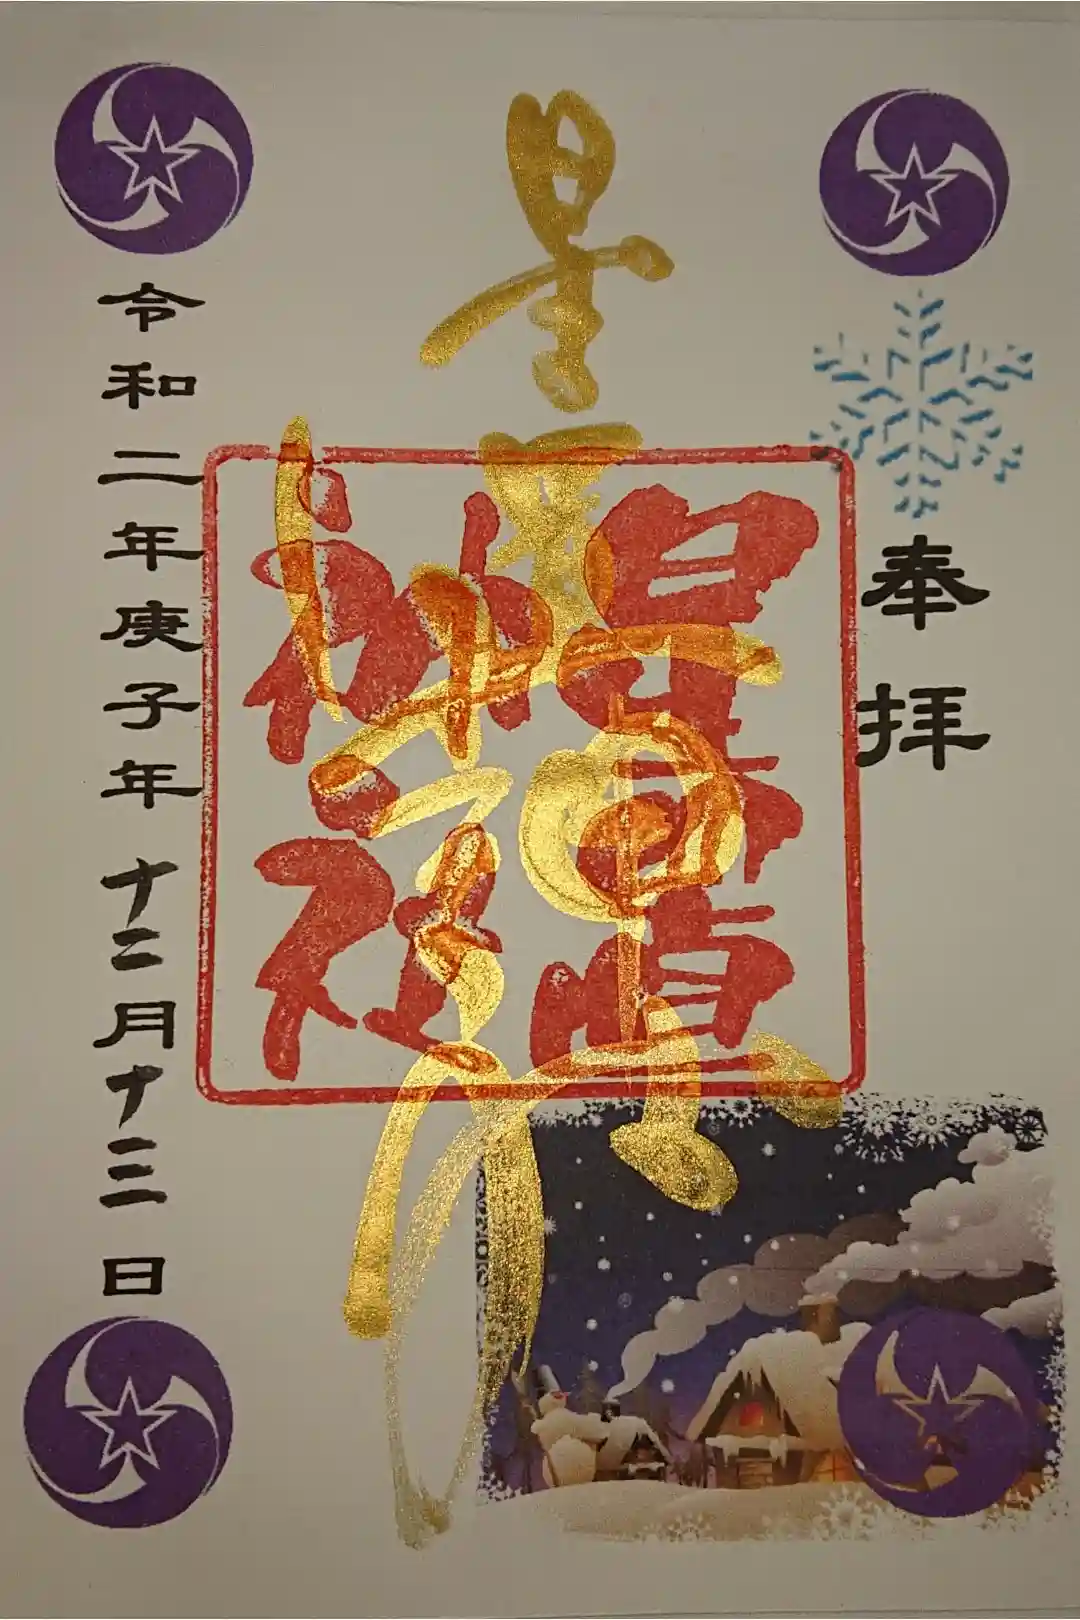 奉拝
星置神社
星置
神社
令和二年庚子年十二月十三日